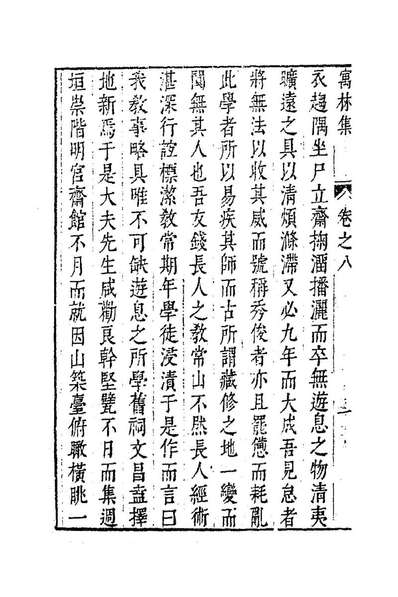 寓林集 卷之八 三
衣趨隅坐尸立齋掬溜播灑而卒無遊息之物清夷
曠遠之具以清煩滌滯又必九年而大成吾見怠者
將無法以收其威而號稱秀俊者亦且罷憊而耗亂
此學者所以易疾其師而古所謂藏修之地一變而
闃無其人也吾友錢長人之教常山不然長人經術
湛深行誼標潔教常期年學徒浸漬于是作而言曰
我教事略具唯不可缺遊息之所學舊祠文昌盍擇
地新焉于是大夫先生咸勸良幹堅甓不日而集週
垣崇階明宮齋館不月而就因山築臺俯瞰橫眺一